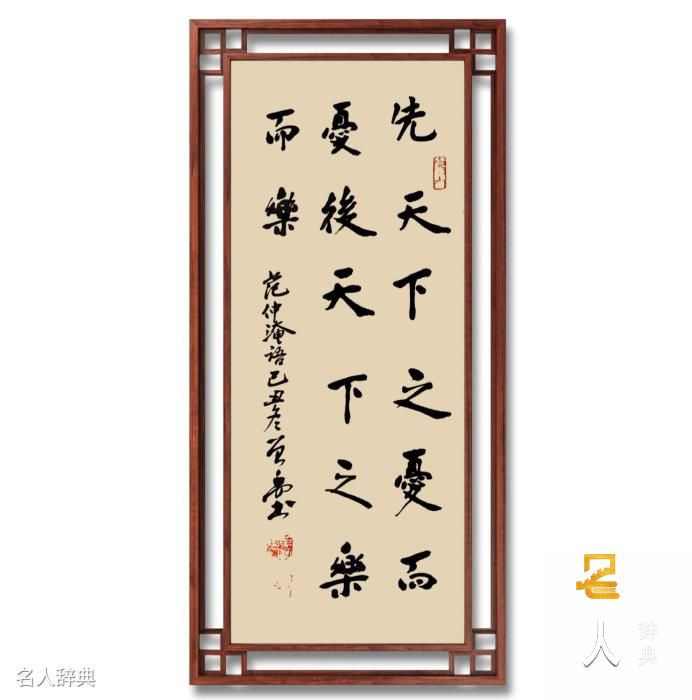 先天下之憂而
憂後天下之樂
而樂
范仲淹语己丑冬
名人辞典
名人
辞典